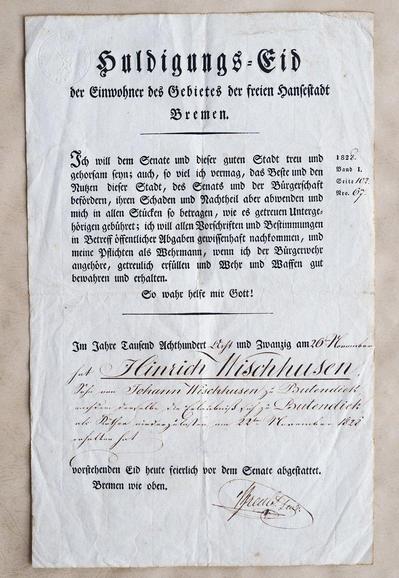 Huldigungs-Eid
der Einwohner des Gebietes der freien Hansestadt
Bremen.
Ich will dem Senate und dieser guten Stadt treu und
gehorsam seyn; auch, so viel ich vermag, das Beste und den
Nutzen dieser Stadt, des Senats und der Bürgerschaft
befördern, ihren Schaden und Nachtheil aber abwenden und
mich in allen Stücken so betragen, wie es getreuen Unterge-
hörigen gebühret; ich will allen Vorschriften und Bestimmungen
in Betreff öffentlicher Abgaben gewissenhaft nachkommen, und
meine Pflichten als Wehrmann, wenn ich der Bürgerwehr
angehöre, getreulich erfüllen und Wehr und Waffen gut
bewahren und erhalten.
So wahr helfe mir Gott!
1828.
Band 1.
Seite 102.
Nro. 67.
Im Jahre Tausend Achthundert Acht und Zwanzig am 26. November
hat Hinrich Wischhusen,
Sohn von Johann Wischhusen zu Butendieck
nachdem derselbe die Erlaubniß sich zu Butendieck
als niederzulassen am 22ten November 1828
erhalten hat
vorstehenden Eid heute feierlich vor dem Senate abgestattet.
Bremen wie oben.